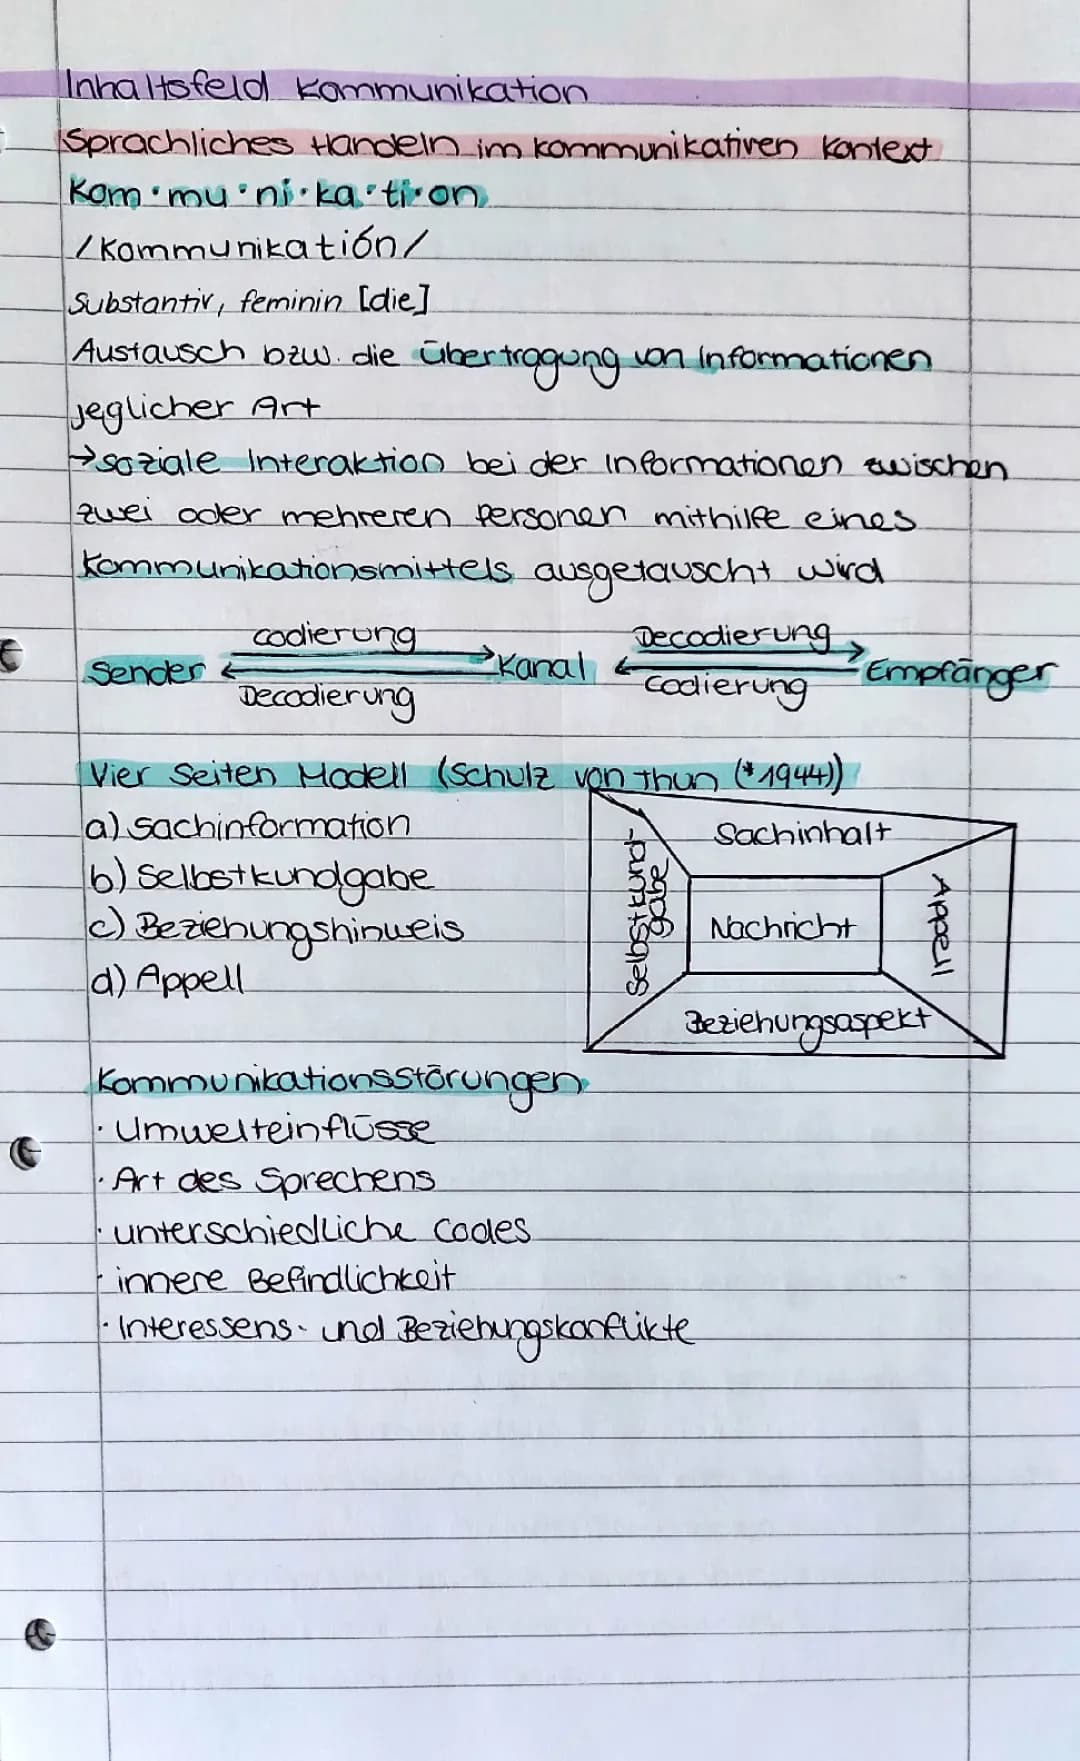 Inhaltsfeld Kommunikation
Sprachliches Handeln im kommunikativen Kontext
Kom·mu·ni·ka·ti·on
/Kommunikatión/
Substantiv, feminin [die]
Austausch bzw. die Übertragung von Informationen
jeglicher Art
→ soziale Interaktion bei der Informationen zwischen
zwei oder mehreren Personen mithilfe eines
Kommunikationsmittels ausgetauscht wird
codierung Decodierung
Sender Kanal Empfänger
Decodierung Codierung
Vier Seiten Modell (Schulz von Thun (*1944))
a) Sachinformation
b) Selbstkundgabe
c) Beziehungshinweis
d) Appell
Sachinhalt
Selbstkund-
gabe
Nachricht
Appell
Beziehungsaspekt
Kommunikationsstörungen
· Umwelteinflüsse
· Art des Sprechens
· unterschiedliche Codes
· innere Befindlichkeit
· Interessens- und Beziehungskonflikte